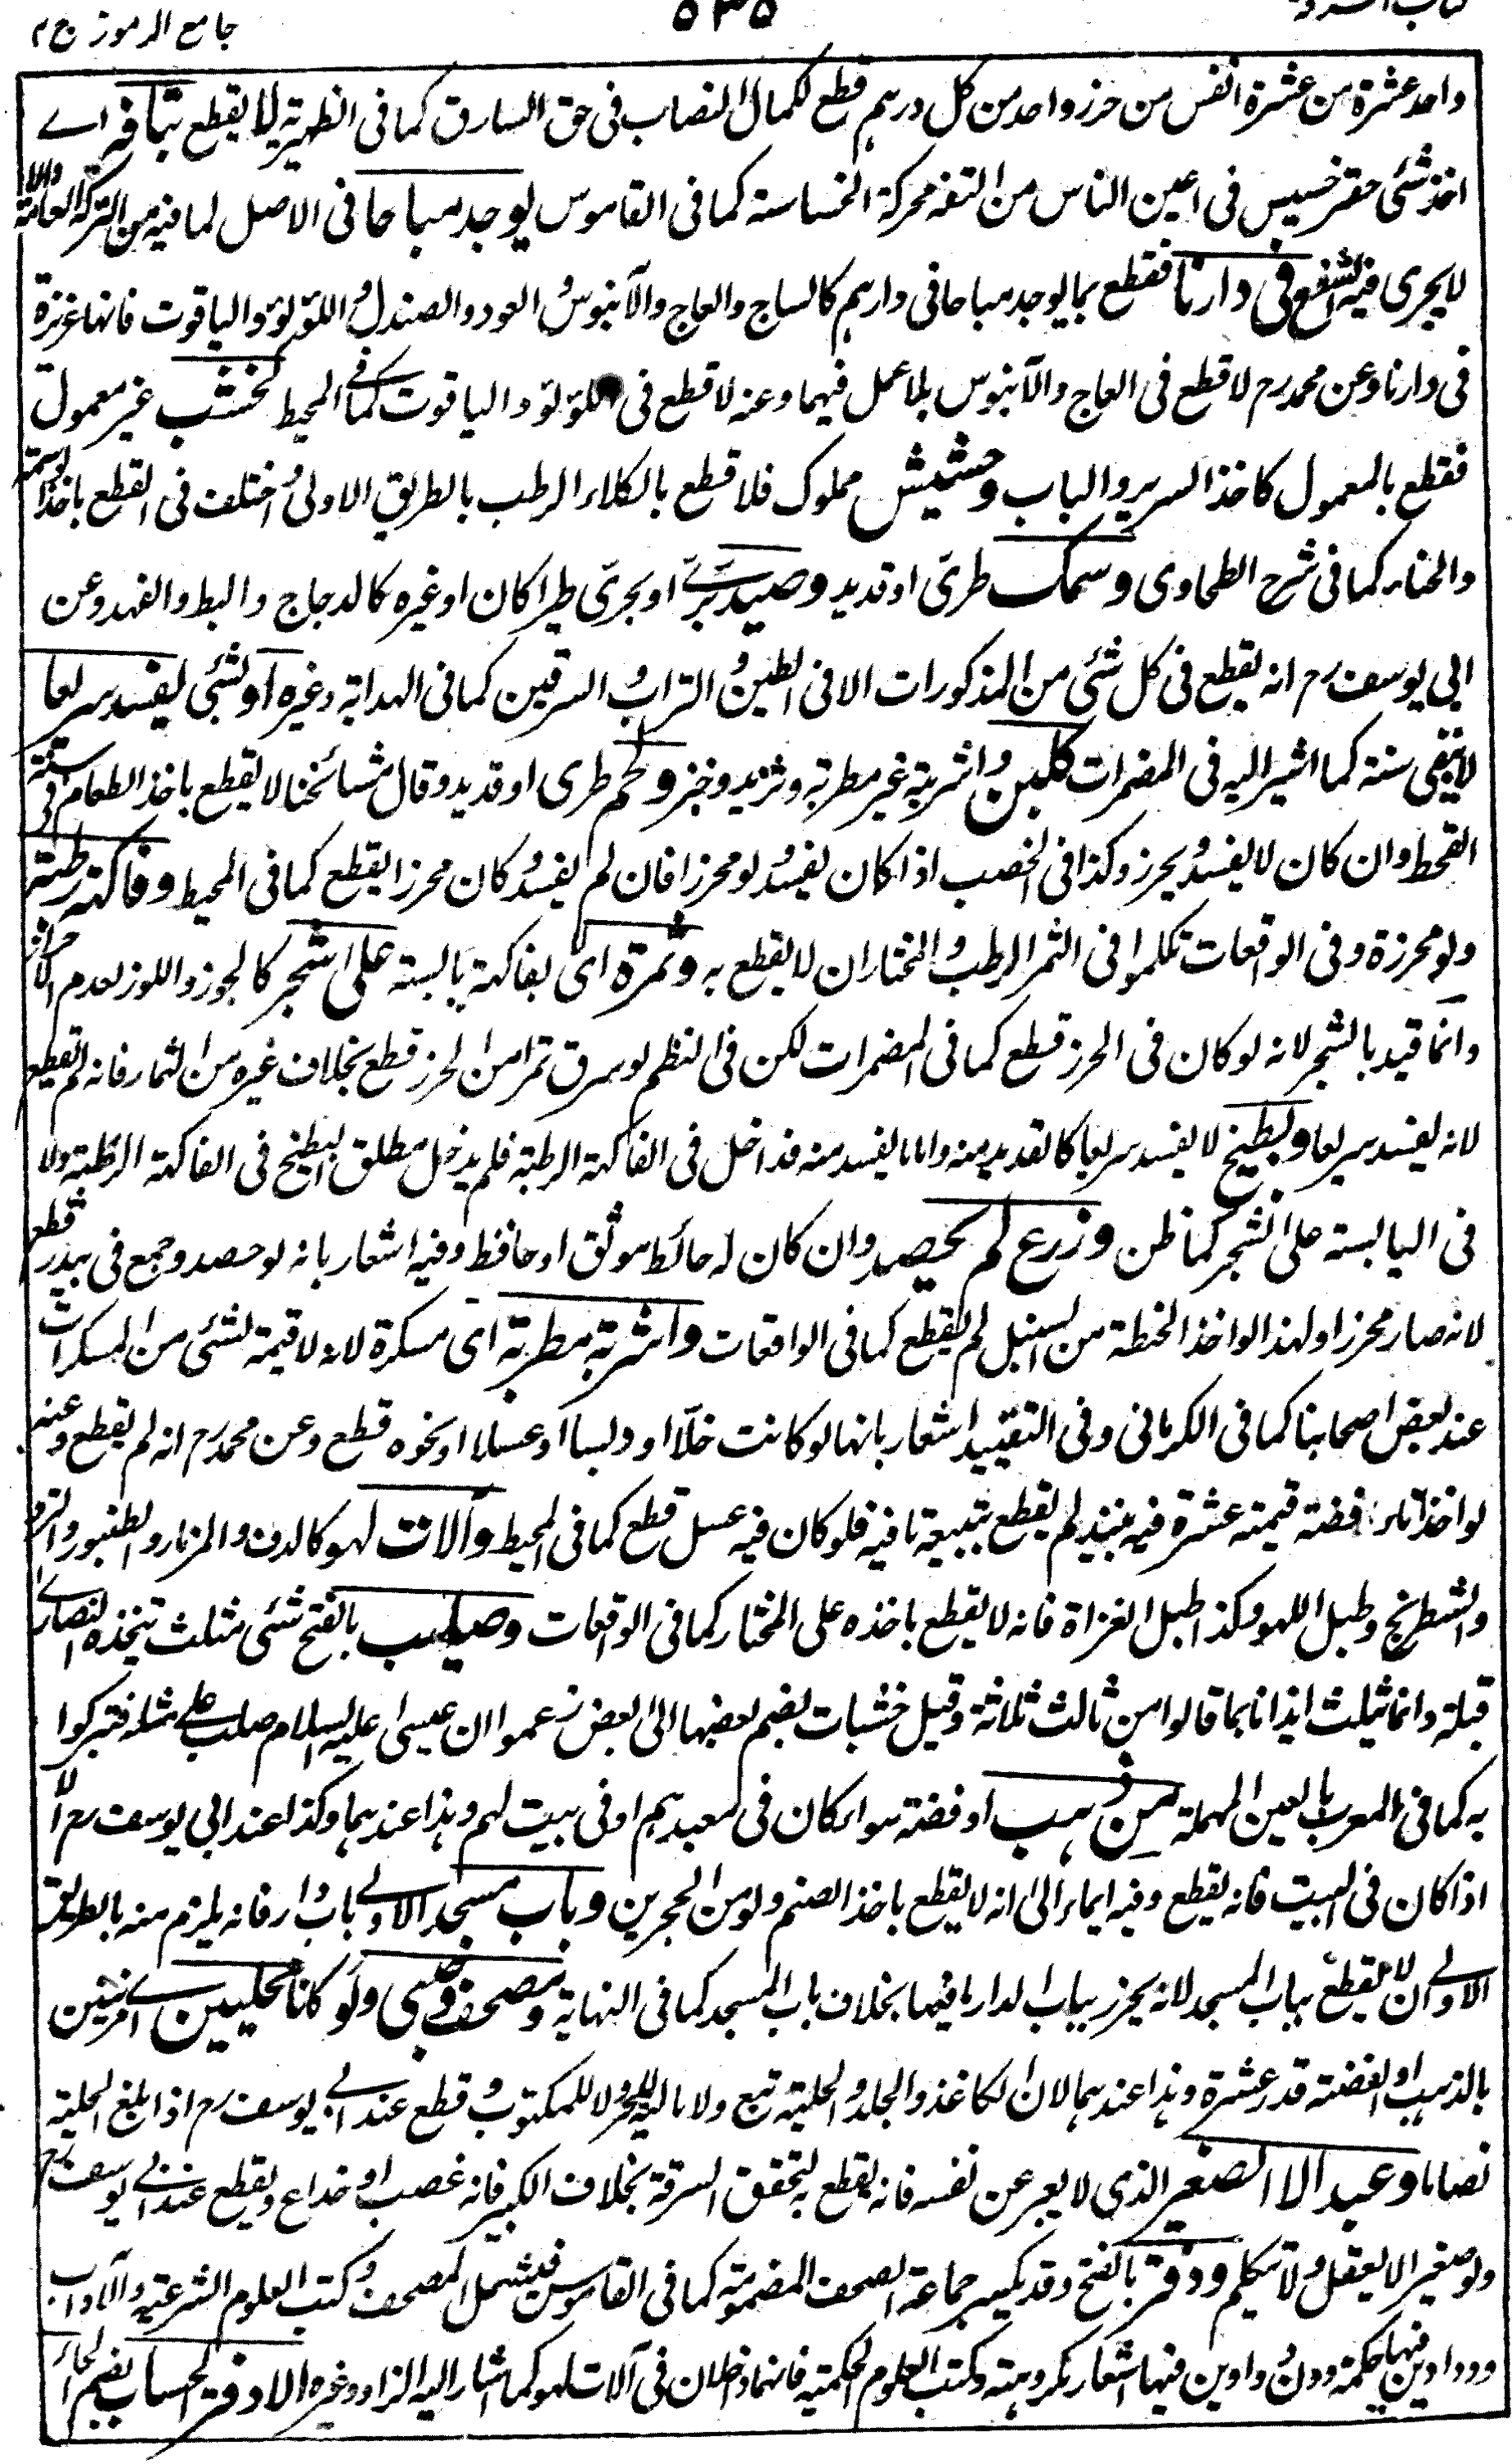 جامع الرموز ج ٢
٥٣٥
كتاب
واحد عشرة من عشرة انفس من حرز واحد من كل درهم قطع لكمال النصاب فى حق السارق كما فى الظهيرية لا يقطع بتافه اے
اخذ شئ حقير خسيس فى اعين الناس من التفه محركة الخساسة كما فى القاموس يوجد مباحا فى الاصل لما فيه من الشركة العامة والا
لا يجرى فيه الشفع فى دارنا فقطع بما يوجد مباحا فى دارهم كالساج والعاج والآبنوس والعود والصندل واللؤلؤ والياقوت فانها عزيزة
فى دارنا وعن محمد رح لا قطع فى العاج والآبنوس بلا عمل فيهما وعنه لا قطع فى اللؤلؤ والياقوت كما فے المحيط كخشب غير معمول
فقطع بالمعمول كاخذ السرير والباب وحشيش مملوك فلا قطع بالكلاء الرطب بالطريق الاولى واختلف فى القطع باخذ الوسمة
والحناء كما فى شرح الطحاوى وسمك طرىّ او قديد وصيد برّے او بحرىّ طيرا كان او غيره كالدجاج والبط والفهد وعن
ابى يوسف رح انه يقطع فى كل شئ من المذكورات الا فى الطين والتراب والسرقين كما فى الهداية وغيره او لشئ يفسد سريعا
لا يبقى سنة كما اشير اليه فى المضمرات كلبن واشربة غير مطربة وثريد وخبز ولحم طرى او قديد وقال مشائخنا لا يقطع باخذ الطعام فى سنة
القحط وان كان لا يفسد ويحرز وكذا فى الخصب اذا كان يفسد ولو محرزا فان لم يفسد وكان محرزا يقطع كما فى المحيط وفاكهة رطبة
ولو محرزة وفى الواقعات تكلموا فى الثمر الرطب والمختار ان لا يقطع به وثمرة اى بفاكهة يابسة على الشجر كالجوز واللوز لعدم الاحراز
وانما قيد بالشجر لانه لو كان فى الحرز قطع كما فى المضمرات لكن فى النظم لو سرق تمرا من الحرز قطع بخلاف غيره من الثمار فانه لم يقطع
لانه يفسد سريعا وبطيخ لا يفسد سريعا كالقديد منه واما ما يفسد منه فداخل فى الفاكهة الرطبة فلم يدخل مطلق البطيخ فى الفاكهة الرطبة ولا
فى اليابسة على الشجر كما ظن وزرع لم يحصد وان كان له حائط موثق او حافظ وفيه اشعار بانه لو حصد وجمع فى بيدر قطع
لانه صار محرزا ولهذا لو اخذ الحنطة من السنبل لم يقطع كما فى الواقعات واشربة مطربة اى مسكرة لانه لا قيمة لشئ من المسكرات
عند بعض اصحابنا كما فى الكرمانى وفى التقييد اشعار بانها لو كانت خلّا او دبسا او عسلا او نحوه قطع وعن محمد رح انه لم يقطع وعنه
لو اخذ اناء فضة قيمته عشرة فيه نبيذ لم يقطع بتبعية ما فيه فلو كان فيه عسل قطع كما فى المحيط وآلات لهو كالدف والمزمار والطنبور والنرد
والشطرنج وطبل اللهو وكذا طبل الغزاة فانه لا يقطع باخذه على المختار كما فى الواقعات وصليب بالفتح شئ مثلث يتخذه النصارى
قبلة وانما يثلث ايذانا بما قالوا من ثالث ثلاثة وقيل خشبات يضم بعضها الى بعض زعموا ان عيسى عليه السلام صلب على مثله فتبركوا
به كما فى المعرب بالعين المهملة من ذهب او فضة سواء كان فى معبدهم او فى بيت لهم وهذا عندهما وكذا عند ابى يوسف رح الا
اذا كان فى البيت فانه يقطع وفيه ايماء الى انه لا يقطع باخذ الصنم ولو من الحجرين وباب مسجد الاولے باب دار فانه يلزم منه بالطريق
الاولے ان لا يقطع بباب المسجد لانه يحرز بباب الدار ما فيها بخلاف باب المسجد كما فى النهاية ومصحف وصبى ولو كانا محليين اے مزينين
بالذهب او الفضة قدر عشرة وهذا عندهما لان الكاغذ والجلد والحلية تبع ولا مالية للحر ولا للمكتوب وقطع عند ابے يوسف رح اذا بلغ الحلية
نصابا وعبد الا الصغير الذى لا يعبر عن نفسه فانه يقطع به لتحقق السرقة بخلاف الكبير فانه غصب او خداع ويقطع عند ابى يوسف رح
ولو صغيرا لا يعقل ولا يتكلم ودفتر بالفتح وقد يكسر جماعة الصحف المضمومة كما فى القاموس فيشمل المصحف وكتب العلوم الشرعية والآداب
ودواوين فيها حكمة ودواوين فيها اشعار مكروهة وكتب العلوم الحكمية فانهما داخلان فى آلات لهو كما اشار اليه الزاد وغيره الا دفتر الحساب بضم الحاء